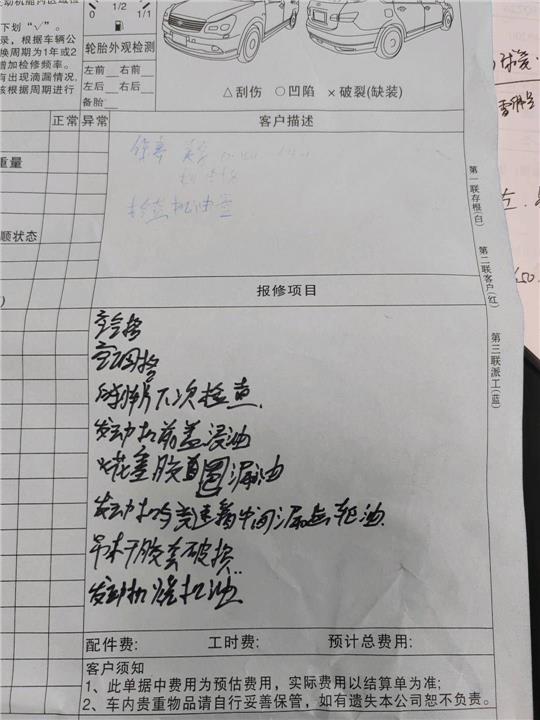 下划“√”。
录，根据车辆公
换周期为1年或2
增加检修频率。
有出现滴漏情况，
亥根据周期进行
0 1/2 1/1
轮胎外观检测
左前 右前
左后 右后
备胎
△刮伤 ○凹陷 ×破裂(缺装)
正常 异常 客户描述
重量
保养
检查机油
顺状态
第一联存根(白)
第二联客户(红)
第三联派工(蓝)
报修项目
空气格
空调格
刹车片下次检查.
发动机前盖浸油
火花塞胶直圈漏油
发动机与变速箱中间漏 油
吊杆胶套破损
发动机烧机油
配件费: 工时费: 预计总费用:
客户须知
1、此单据中费用为预估费用，实际费用以结算单为准;
2、车内贵重物品请自行妥善保管，如有遗失本公司恕不负责。